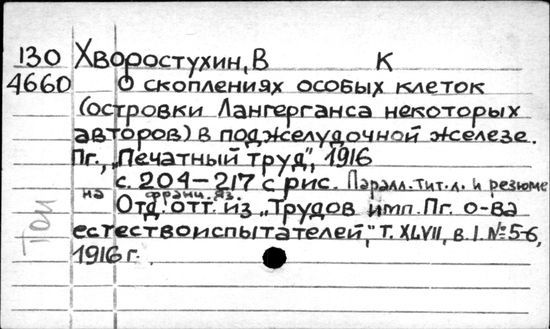 130 Хворостухин, В К
4660 О скоплениях особых клеток
(островки Лангерганса некоторых
авторов) в поджелудочной железе.
Пг., „Печатный труд", 1916
с. 204-217 с рис. Паралл. тит. л. и резюме
на франц. яз.
Отд. отт. из „Трудов имп. Пг. о-ва
естествоиспытателей," Т. XLVII, в. I. №5-6,
1916 г.